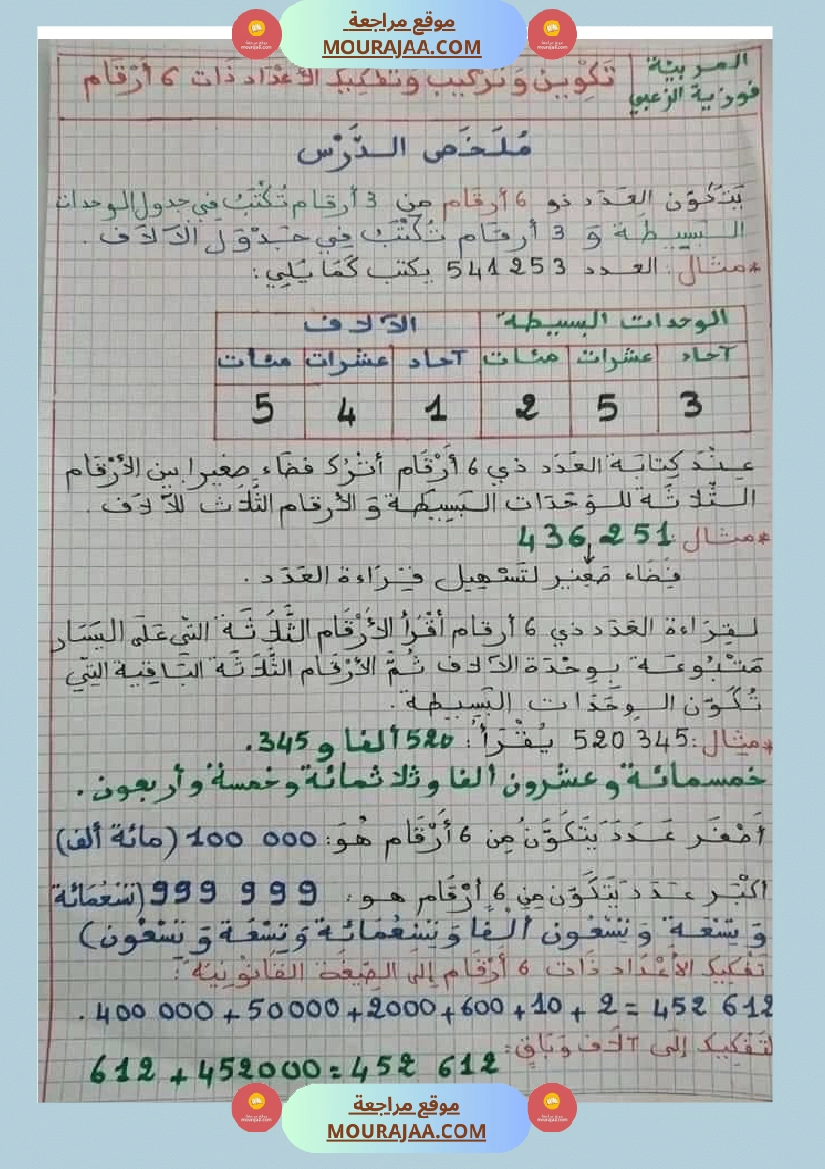 موقع مراجعة
MOURAJAA.COM
المربية
فوزية الزعبي
تكوين وتركيب وتفكيك الأعداد ذات 6 أرقام
مُلَخَّص الدَّرْس
يَتَكَوَّنُ العَدَد ذو 6 أرقام من 3 أرقام تُكْتَبُ في جدول الوحدات
البسيطة وَ 3 أرقام تُكْتَبُ في جَدْوَل الآلاف .
*مثال: العدد 253 541 يكتب كَمَا يَلِي:
الوحدات البسيطة الآلاف
آحاد عشرات مئات آحاد عشرات مئات
3 5 2 1 4 5
عِنْدَ كِتَابَة العَدَد ذي 6 أَرْقَام أتْرُك فضَاء صغيرا بين الأرْقام
الثَّلاثَة للوَحَدَات البَسِيطَة وَ الأرقام الثَّلاث للآلاف .
*مثال: 251 436
فَضَاء صَغير لتَسْهيل قِرَاءة العَدَد .
لقِرَاءة العَدَد ذي 6 أرقام أقْرَأُ الأَرْقَام الثَّلاثَة التي عَلَى اليَسَار
مَتْبُوعَة بوحْدَة الآلاف ثُمَّ الأرْقام الثَّلاثَة البَاقية التي
تُكَوّن الوحَدَات البَسيطة .
*مثال: 345 520 يُقْرَأُ: 520 ألفا و 345 .
خمسمائة وعشرون ألفا وثلاثمائة وخمسة وأربعون .
أَصْغَر عَدَد يَتَكَوَّنُ مِن 6 أَرْقَام هُوَ: 000 100 (مائة ألف)
اكْبَر عدَد يَتَكَوّن مِن 6 أرْقَام هو: 999 999 (تسْعُمَائة
وَ تِسْعَة وَ تِسْعُون ألْفًا وَ تِسْعُمَائة وَ تِسْعَة وَ تِسْعُون)
تَفْكيك الأعْدَاد ذات 6 أرْقام إلى الصِيغَة القَانُونيَّة:
452 612 = 2 + 10 + 600 + 2000 + 50000 + 400 000 .
تَفْكِيك إلَى آلاَف وَبَاقٍ:
452 612 = 452000 + 612
موقع مراجعة
MOURAJAA.COM